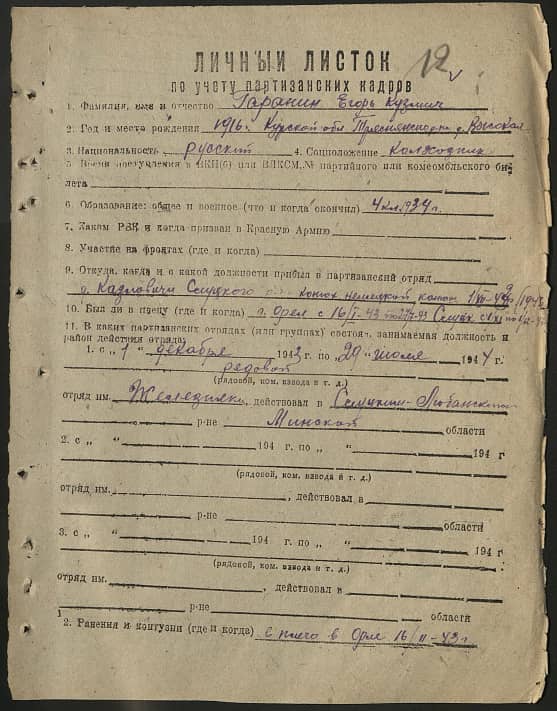 12
ЛИЧНЫЙ ЛИСТОК
по учету партизанских кадров
1. Фамилия, имя и отчество Гаранин Егорь Кузмич
2. Год и место рождения 1916 г. Курской обл д. Высокая
3. Национальность русский 4. Соцположение Колхозник
5. Время поступления в ВКП(б) или ВЛКСМ, № партийного или комсомольского би-
лета
6. Образование: общее и военное (что и когда окончил) 4 кл. 1934 г.
7. Каким РВК и когда призван в Красную Армию
8. Участие на фронтах (где и когда)
9. Откуда, когда и с какой должности прибыл в партизанский отряд
д. Казловичи Слуцкого конюх немецкой
10. Был ли в плену (где и когда) г. Орел с 16/II-43 Слуцк
11. В каких партизанских отрядах (или группах) состоял, занимаемая должность и
район действия отряда:
1. с „1 “ декабря 1943 г. по „29 “ июля 1944 г.
редовой
(рядовой, ком. взвода и т. д.)
отряд им. Железняка, действовал в Слуцким-Любанском
р-не Минской области
2. с „ “ 194 г. по „ “ 194 г
(рядовой, ком. взвода и т. д.)
отряд им. , действовал в
р-не области
3. с „ “ 194 г. по „ “ 194 г
(рядовой, ком. взвода и т. д.)
отряд им. , действовал в
р-не области
2. Ранения и контузии (где и когда) в Орле 16/II-43 г.